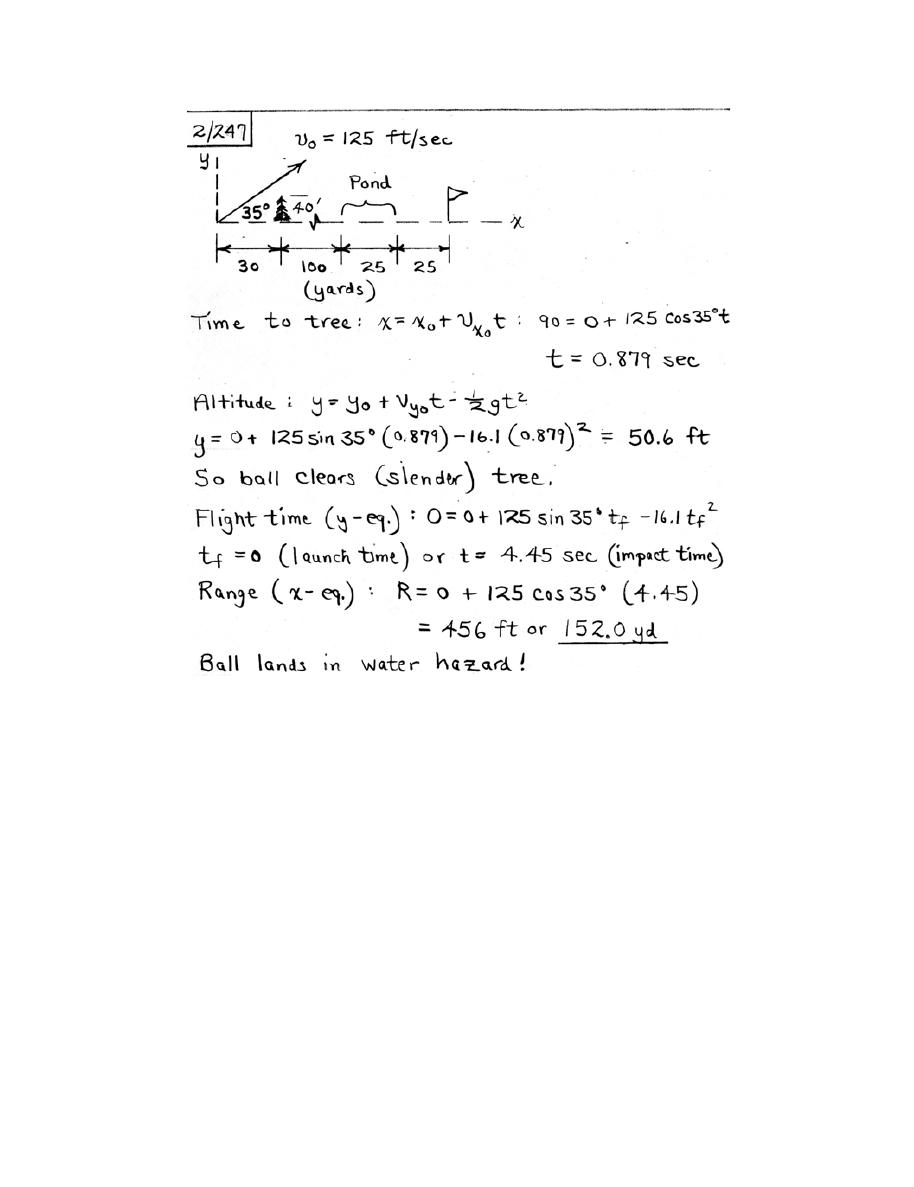 2/247
v₀ = 125 ft/sec
y
Pond
35° 40'
x
30 100 25 25
(yards)
Time to tree: x = x₀ + v_x₀ t : 90 = 0 + 125 cos35°t
t = 0.879 sec
Altitude : y = y₀ + v_y₀ t - ½gt²
y = 0 + 125 sin 35° (0.879) - 16.1 (0.879)² = 50.6 ft
So ball clears (slender) tree.
Flight time (y-eq.) : 0 = 0 + 125 sin 35° t_f - 16.1 t_f²
t_f = 0 (launch time) or t = 4.45 sec (impact time)
Range (x-eq.) : R = 0 + 125 cos 35° (4.45)
= 456 ft or 152.0 yd
Ball lands in water hazard!